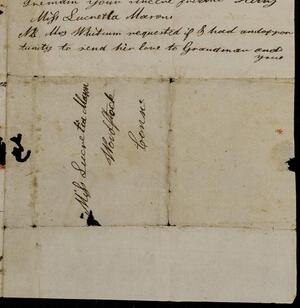 I remain your sincere friend
Miss Lucretia Mason
NB Mrs Whitnum requested if I had and oppor
tunity to send her love to Grandmar and
you
Miss Lucretia Mason
Woodstock
Conne